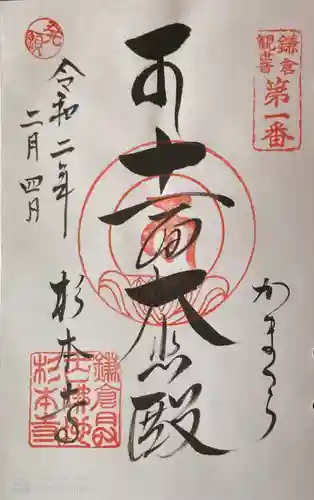 鎌倉
観音
第一番
かまくら
十一面大悲殿
発願
令和二年
二月四日
杉本寺